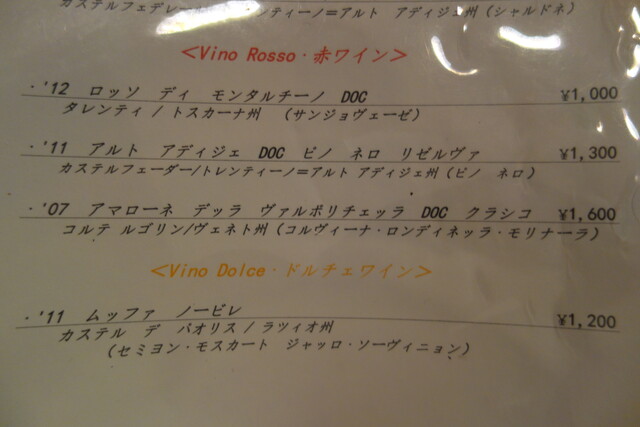 カステルフェデレー トレンティーノ=アルト アディジェ州 (シャルドネ)
<Vino Rosso・赤ワイン>
・'12 ロッソ ディ モンタルチーノ DOC ¥1,000
タレンティ / トスカーナ州 (サンジョヴェーゼ)
・'11 アルト アディジェ DOC ピノ ネロ リゼルヴァ ¥1,300
カステルフェーダー/トレンティーノ=アルト アディジェ州 (ピノ ネロ)
・'07 アマローネ デッラ ヴァルポリチェッラ DOC クラシコ ¥1,600
コルテ ルゴリン/ヴェネト州 (コルヴィーナ・ロンディネッラ・モリナーラ)
<Vino Dolce・ドルチェワイン>
・'11 ムッファ ノービレ ¥1,200
カステル デ パオリス / ラツィオ州
(セミヨン・モスカート ジャッロ・ソーヴィニョン)